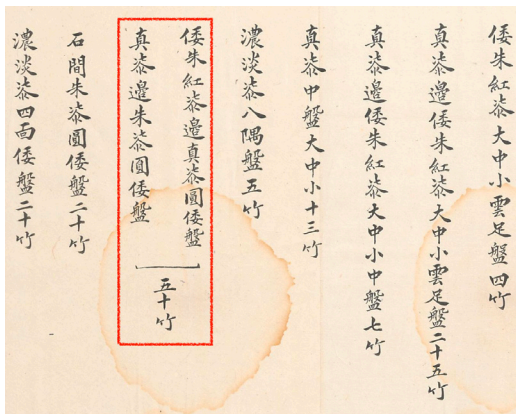 倭朱紅漆大中小雲足盤四竹
真漆邊倭朱紅漆大中小雲足盤二十五竹
真漆邊倭朱紅漆大中小中盤七竹
真漆中盤大中小十三竹
濃淡漆八隅盤五竹
倭朱紅漆邊真漆圓倭盤
真漆邊朱漆圓倭盤
五十竹
石間朱漆圓倭盤二十竹
濃淡漆四面倭盤二十竹